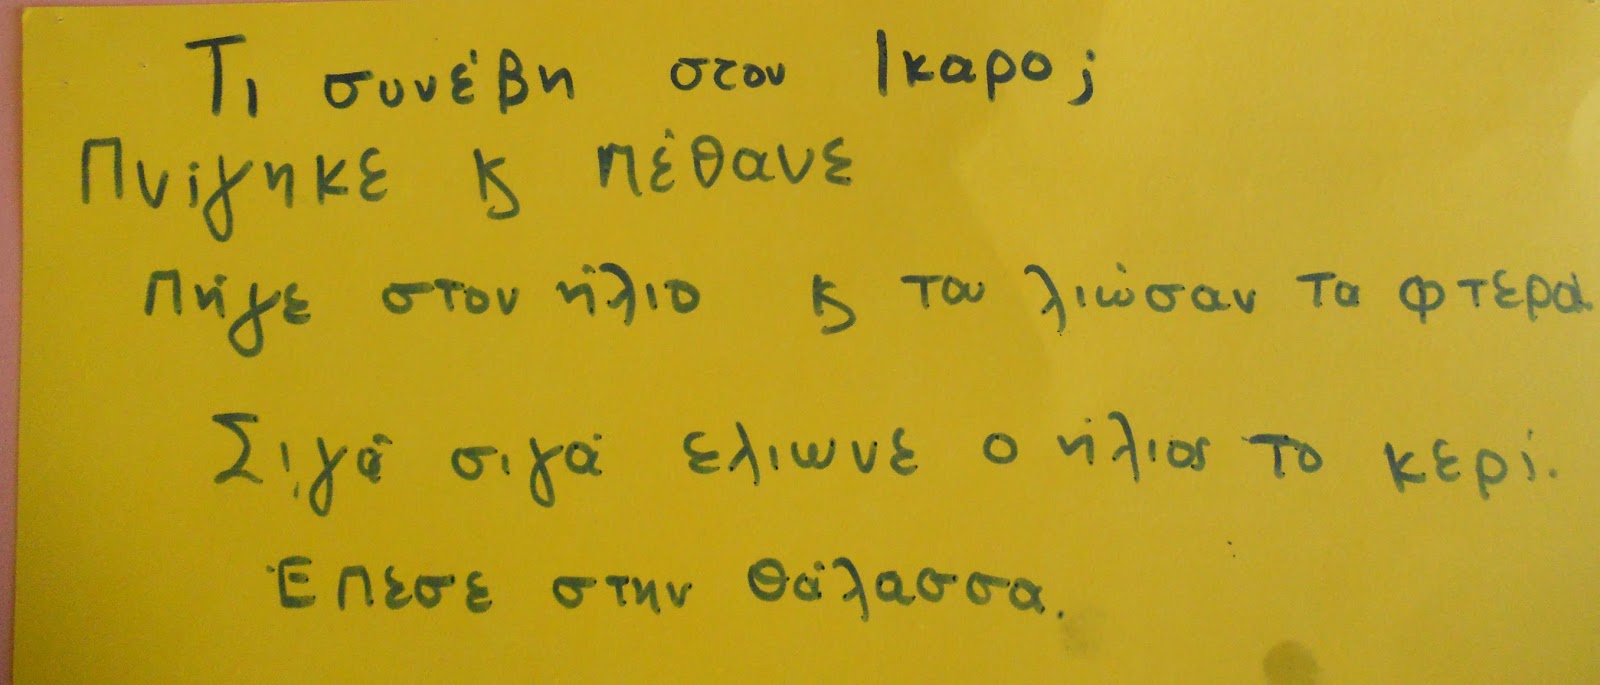 Τι συνέβη στον Ικαρο;
Πνίγηκε ϗ πέθανε
Πήγε στον ήλιο ϗ του λιώσαν τα φτερά.
Σιγά σιγά ελιωνε ο ήλιος το κερί.
Έπεσε στην θάλασσα.